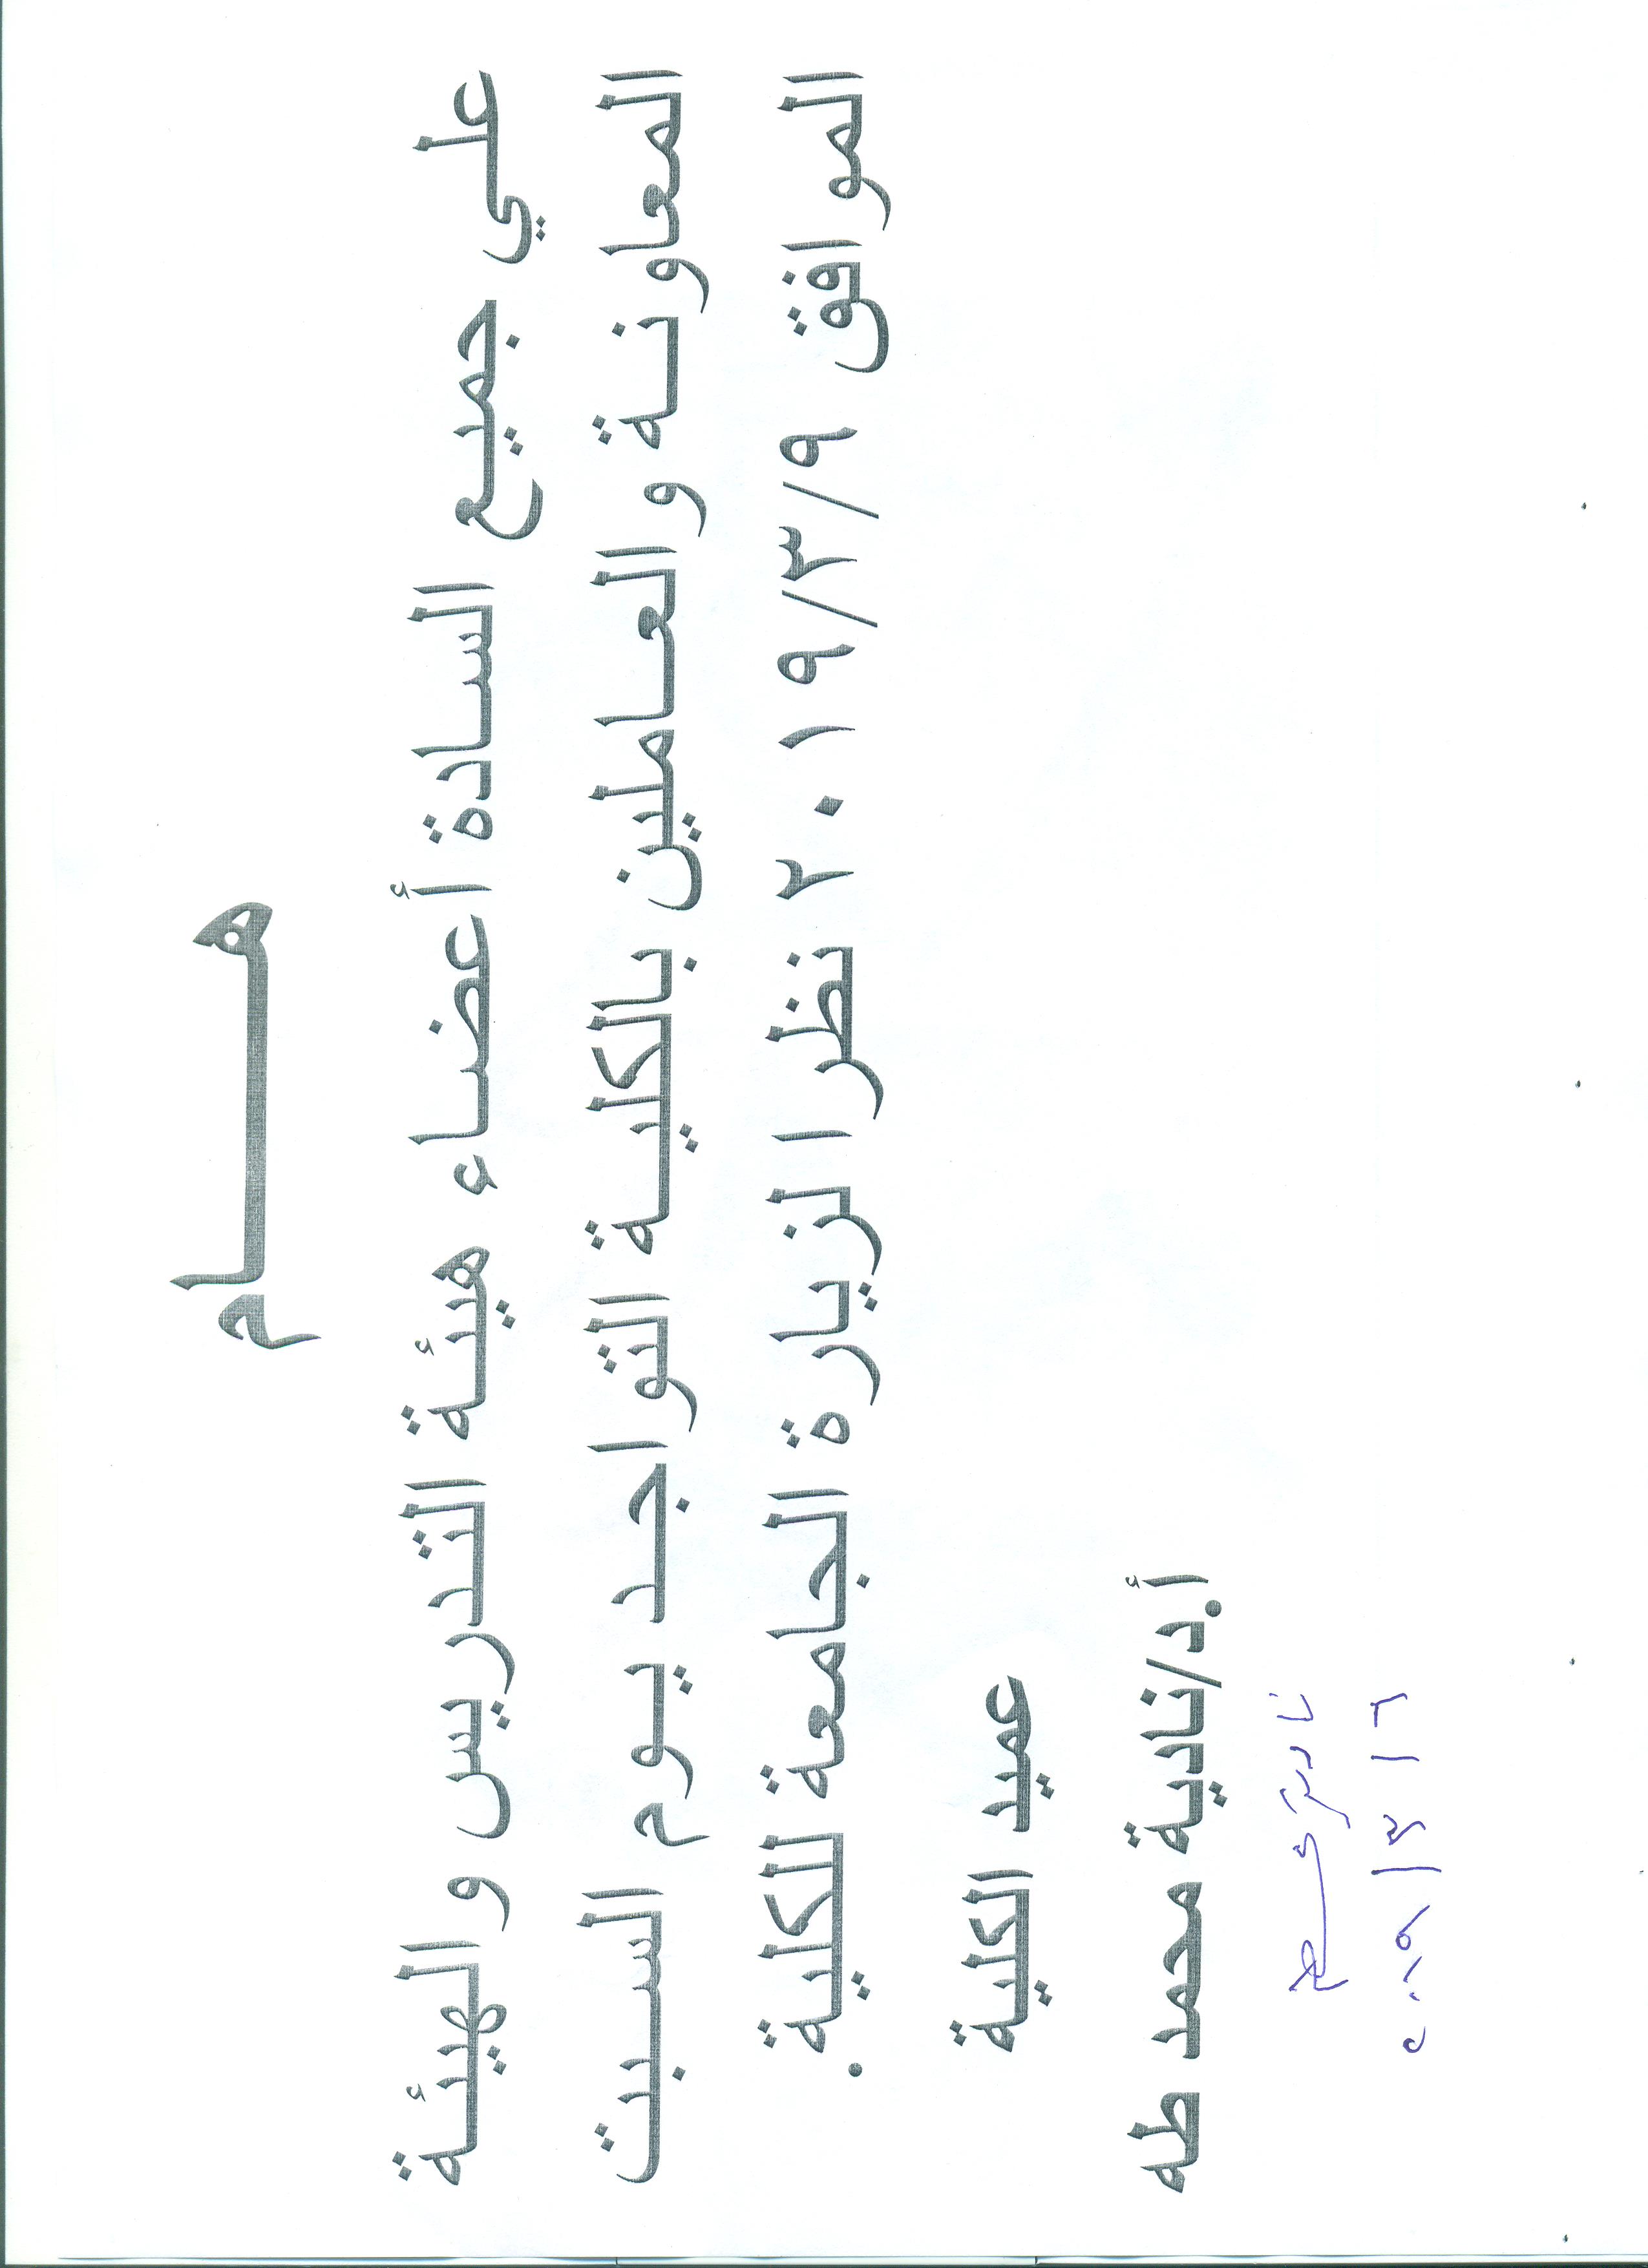 هـــام
علي جميع السادة أعضاء هيئة التدريس و الهيئة
المعاونة والعاملين بالكلية التواجد يوم السبت
الموافق ٢٠١٩/٣/٩ نظرا لزيارة الجامعة للكلية.
عميد الكلية
أ.د/نادية محمد طه
٢٠١٩/٣/٦